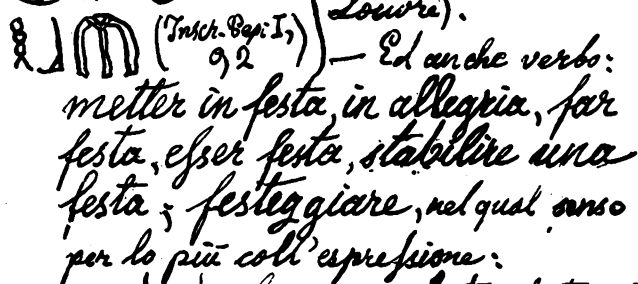 Louvre).
(Inscr. Pepi I,
9, 2) — Ed anche verbo:
metter in festa, in allegria, far
festa, esser festa, stabilire una
festa; festeggiare, nel qual senso
per lo più coll'espressione: